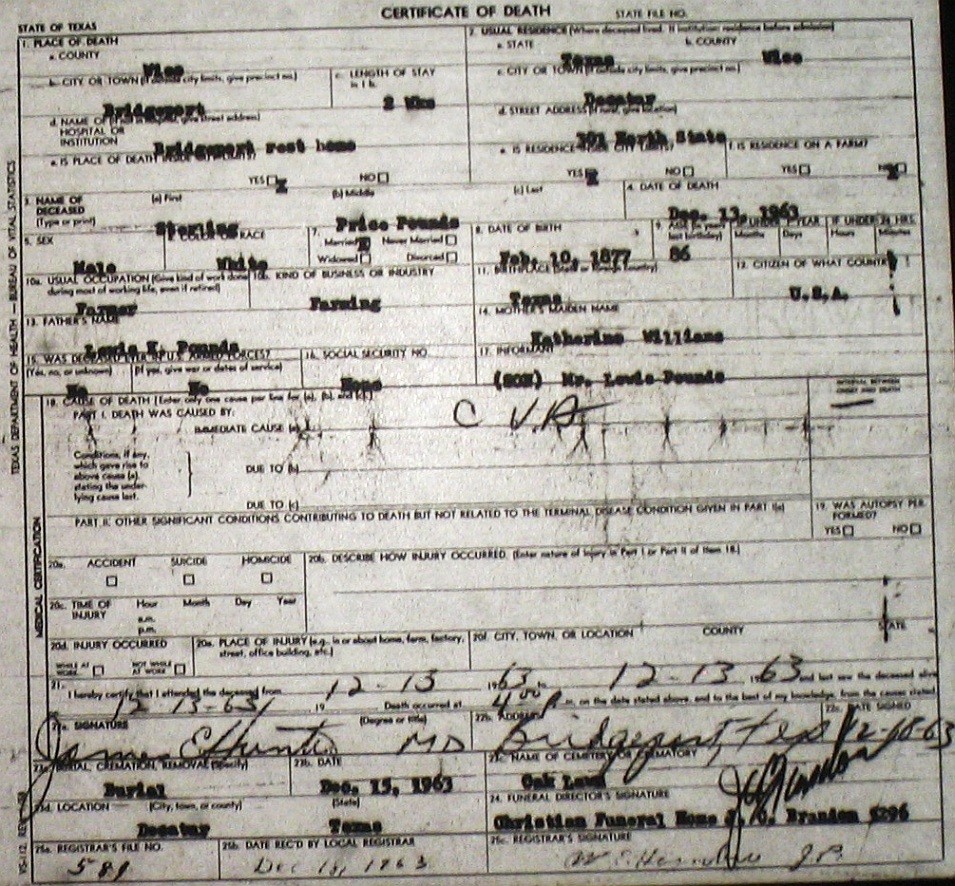 CERTIFICATE OF DEATH
STATE OF TEXAS
STATE FILE NO.
TEXAS DEPARTMENT OF HEALTH — BUREAU OF VITAL STATISTICS
1. PLACE OF DEATH
a. COUNTY
Wise
2. USUAL RESIDENCE (Where deceased lived. If institution: residence before admission)
a. STATE
Texas
b. COUNTY
Wise
b. CITY OR TOWN (If outside city limits, give precinct no.)
Bridgeport
c. LENGTH OF STAY in 1b.
2 Wks
c. CITY OR TOWN (If outside city limits, give precinct no.)
Decatur
d. NAME OF (If not in hospital, give street address)
HOSPITAL OR
INSTITUTION
Bridgeport rest home
d. STREET ADDRESS (If rural, give location)
301 North State
e. IS PLACE OF DEATH INSIDE CITY LIMITS?
YES X NO
e. IS RESIDENCE INSIDE CITY LIMITS?
YES X NO
f. IS RESIDENCE ON A FARM?
YES NO X
3. NAME OF
DECEASED
(Type or print)
(a) First
Sterling
(b) Middle
Price Pounds
(c) Last
4. DATE OF DEATH
Dec. 13, 1963
5. SEX
Male
6. COLOR OR RACE
White
7.
Married X Never Married
Widowed Divorced
8. DATE OF BIRTH
Feb. 10, 1877
9. AGE (In years last birthday)
86
IF UNDER 1 YEAR
Months Days
IF UNDER 24 HRS.
Hours Minutes
10a. USUAL OCCUPATION (Give kind of work done
during most of working life, even if retired)
Farmer
10b. KIND OF BUSINESS OR INDUSTRY
Farming
11. BIRTHPLACE (State or foreign country)
Texas
12. CITIZEN OF WHAT COUNTRY
U.S.A.
13. FATHER'S NAME
Lewis K. Pounds
14. MOTHER'S MAIDEN NAME
Katherine Williams
15. WAS DECEASED EVER IN U.S. ARMED FORCES?
(Yes, no, or unknown) (If yes, give war or dates of service)
No No
16. SOCIAL SECURITY NO.
None
17. INFORMANT
(SON) Mr. Lewis Pounds
MEDICAL CERTIFICATION
18. CAUSE OF DEATH [Enter only one cause per line for (a), (b), and (c).]
PART I. DEATH WAS CAUSED BY:
IMMEDIATE CAUSE (a)
C V.A
INTERVAL BETWEEN
ONSET AND DEATH
Conditions, if any,
which gave rise to
above cause (a),
stating the under-
lying cause last.
DUE TO (b)
DUE TO (c)
PART II. OTHER SIGNIFICANT CONDITIONS CONTRIBUTING TO DEATH BUT NOT RELATED TO THE TERMINAL DISEASE CONDITION GIVEN IN PART I(a)
19. WAS AUTOPSY PER-
FORMED?
YES NO
20a. ACCIDENT SUICIDE HOMICIDE
20b. DESCRIBE HOW INJURY OCCURRED. (Enter nature of injury in Part I or Part II of Item 18.)
20c. TIME OF
INJURY
Hour Month Day Year
a.m.
p.m.
20d. INJURY OCCURRED
WHILE AT WORK NOT WHILE AT WORK
20e. PLACE OF INJURY (e.g., in or about home, farm, factory,
street, office building, etc.)
20f. CITY, TOWN, OR LOCATION COUNTY STATE
21. I hereby certify that I attended the deceased from 12-13 1963 to 12-13 1963 and last saw the deceased alive
12-13-63 19 Death occurred at 4:00 P m. on the date stated above, and to the best of my knowledge, from the causes stated.
22a. SIGNATURE (Degree or title)
James E Hunter MD
22b. ADDRESS
Bridgeport, Tex
22c. DATE SIGNED
12-18-63
23a. BURIAL, CREMATION, REMOVAL (Specify)
Burial
23b. DATE
Dec. 15, 1963
23c. NAME OF CEMETERY OR CREMATORY
Oak Lawn
23d. LOCATION (City, town, or county) (State)
Decatur Texas
24. FUNERAL DIRECTOR'S SIGNATURE
Christian Funeral Home Brandon
25a. REGISTRAR'S FILE NO.
25b. DATE REC'D BY LOCAL REGISTRAR
Dec 18, 1963
25c. REGISTRAR'S SIGNATURE
J.P.